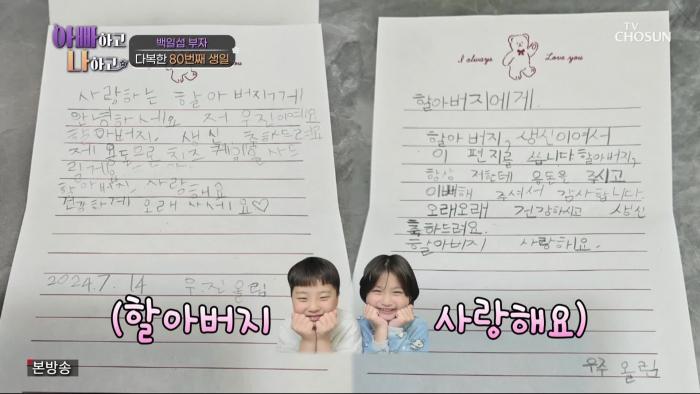 아빠하고
나하고
백일섭 부자
다복한 80번째 생일
TV
CHOSUN
사랑하는 할아버지께
안녕하세요 저 우진이에요
할아버지, 생신 축하드려요
제 용돈으로 치즈 케익을 사드
릴게요
할아버지 사랑해요
건강하게 오래 사세요♡
2024.7.14 우진 올림
I always Love you
할아버지에게
할아버지, 생신이여서
이 편지를 씁니다 할아버지,
항상 저한테 용돈을 주시고
이뻐해 주셔서 감사합니다.
오래오래 건강하시고 생신
축하드려요.
할아버지 사랑해요.
우주 올림
(할아버지 사랑해요)
본방송